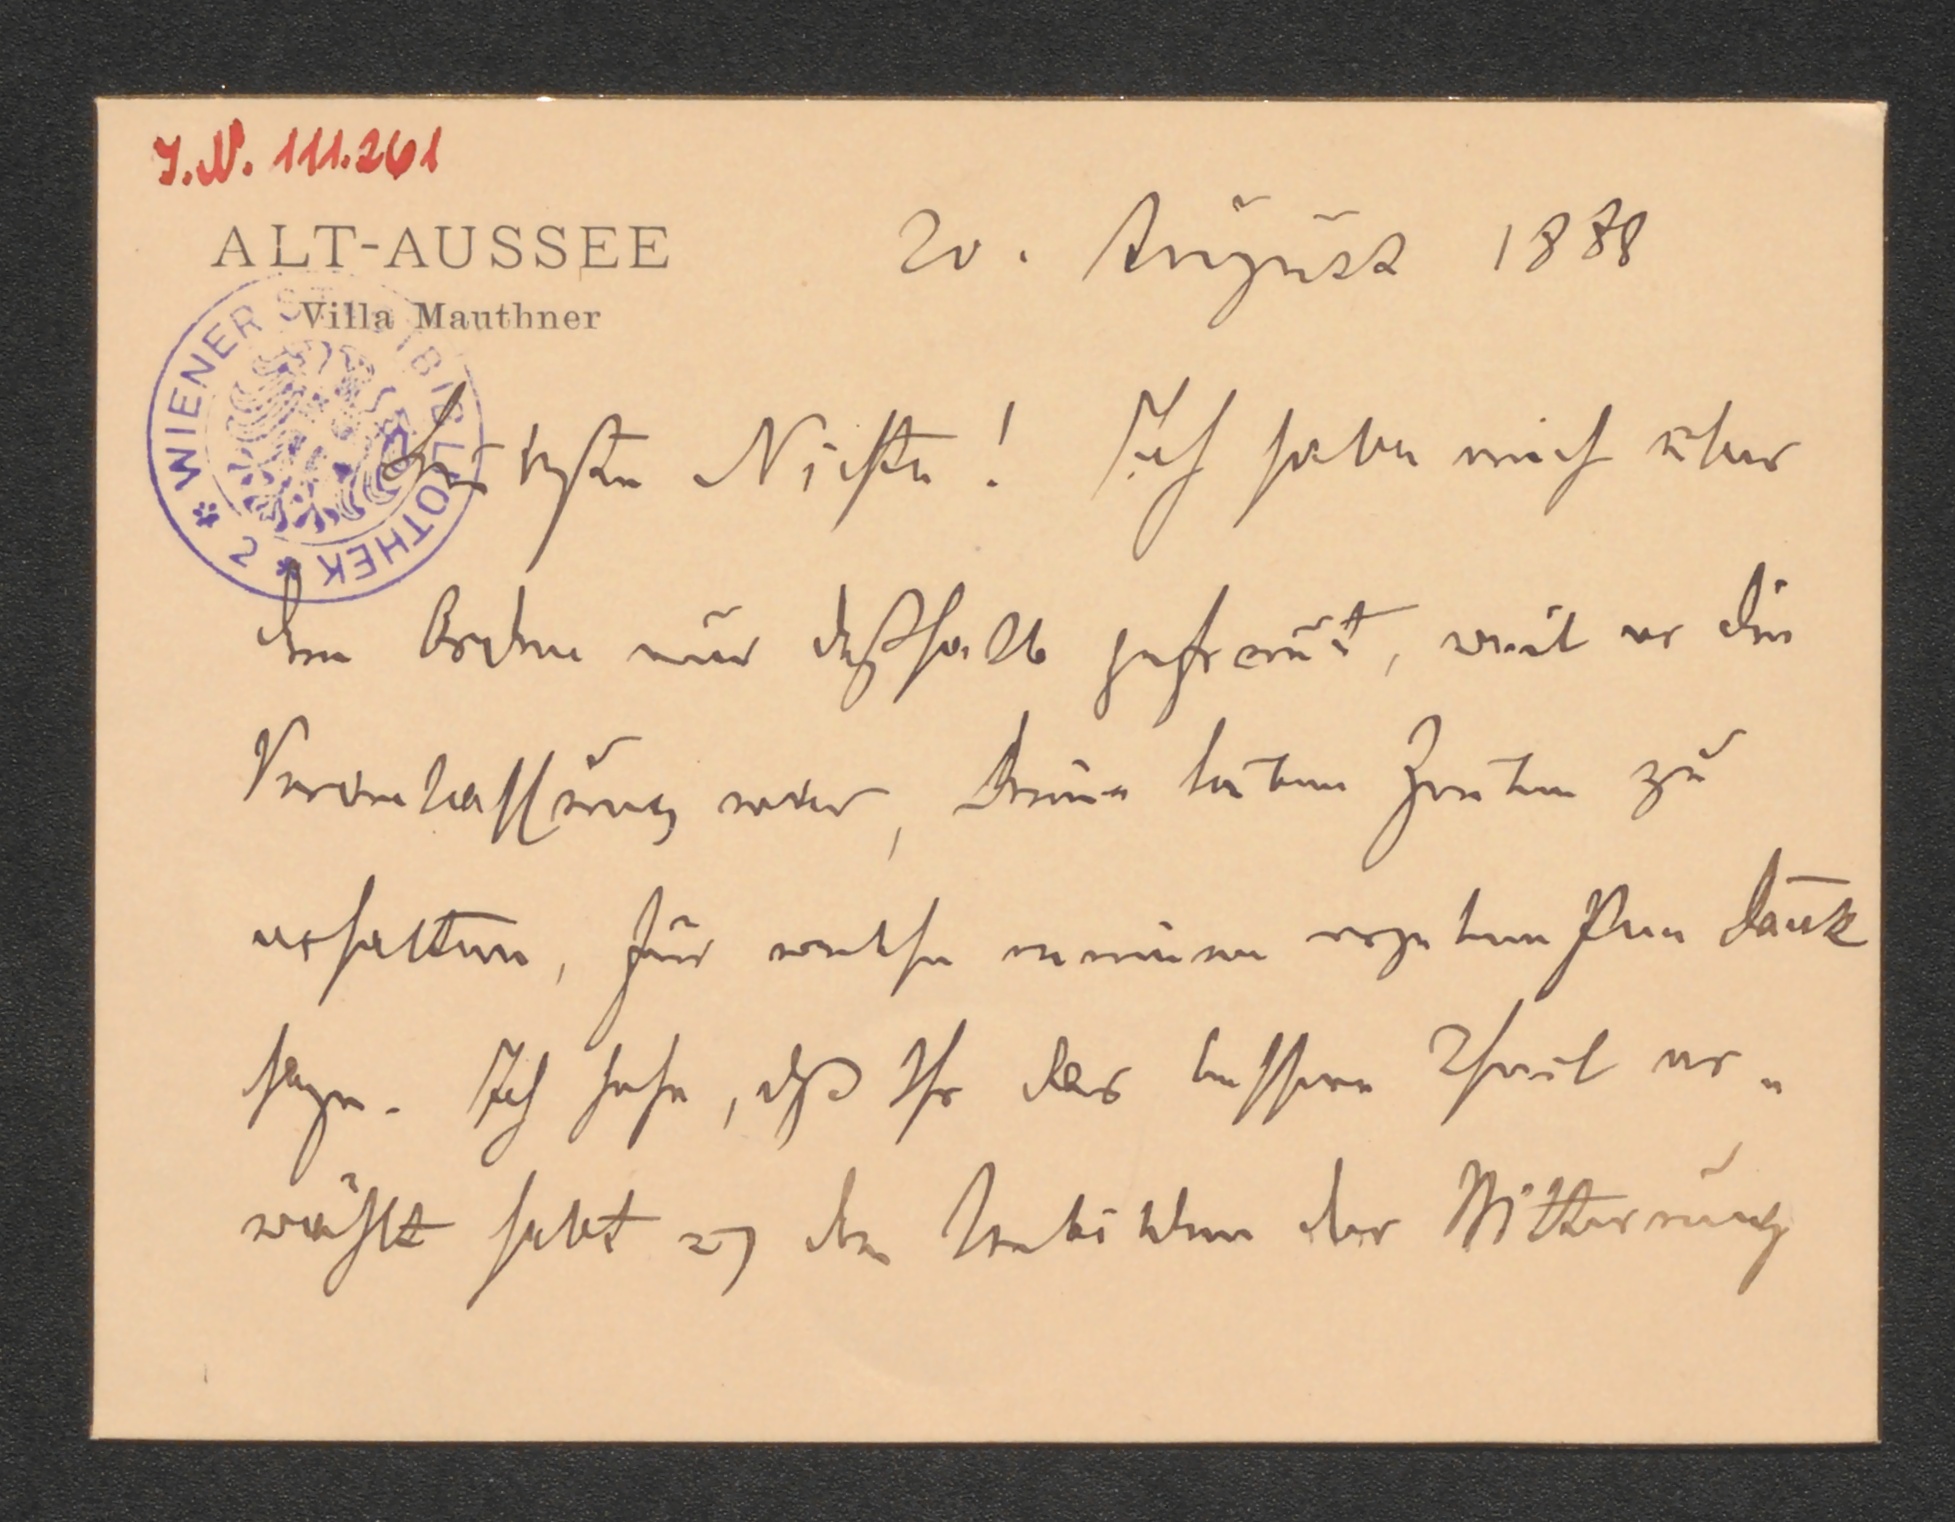 J.N. 111.261
ALT-AUSSEE
Villa Mauthner
20. August 1888
WIENER STADTBIBLIOTHEK * 2 *
Nichte! Ich habe mich über
den Orden nur deßhalb gefreut, weil er die
Veranlassung war, Deine lieben Zeilen zu
erhalten, für welche meinen ergebensten Dank
sage. Ich sehe, daß Ihr das bessere Theil er-
wählt habt den Unbilden der Witterung